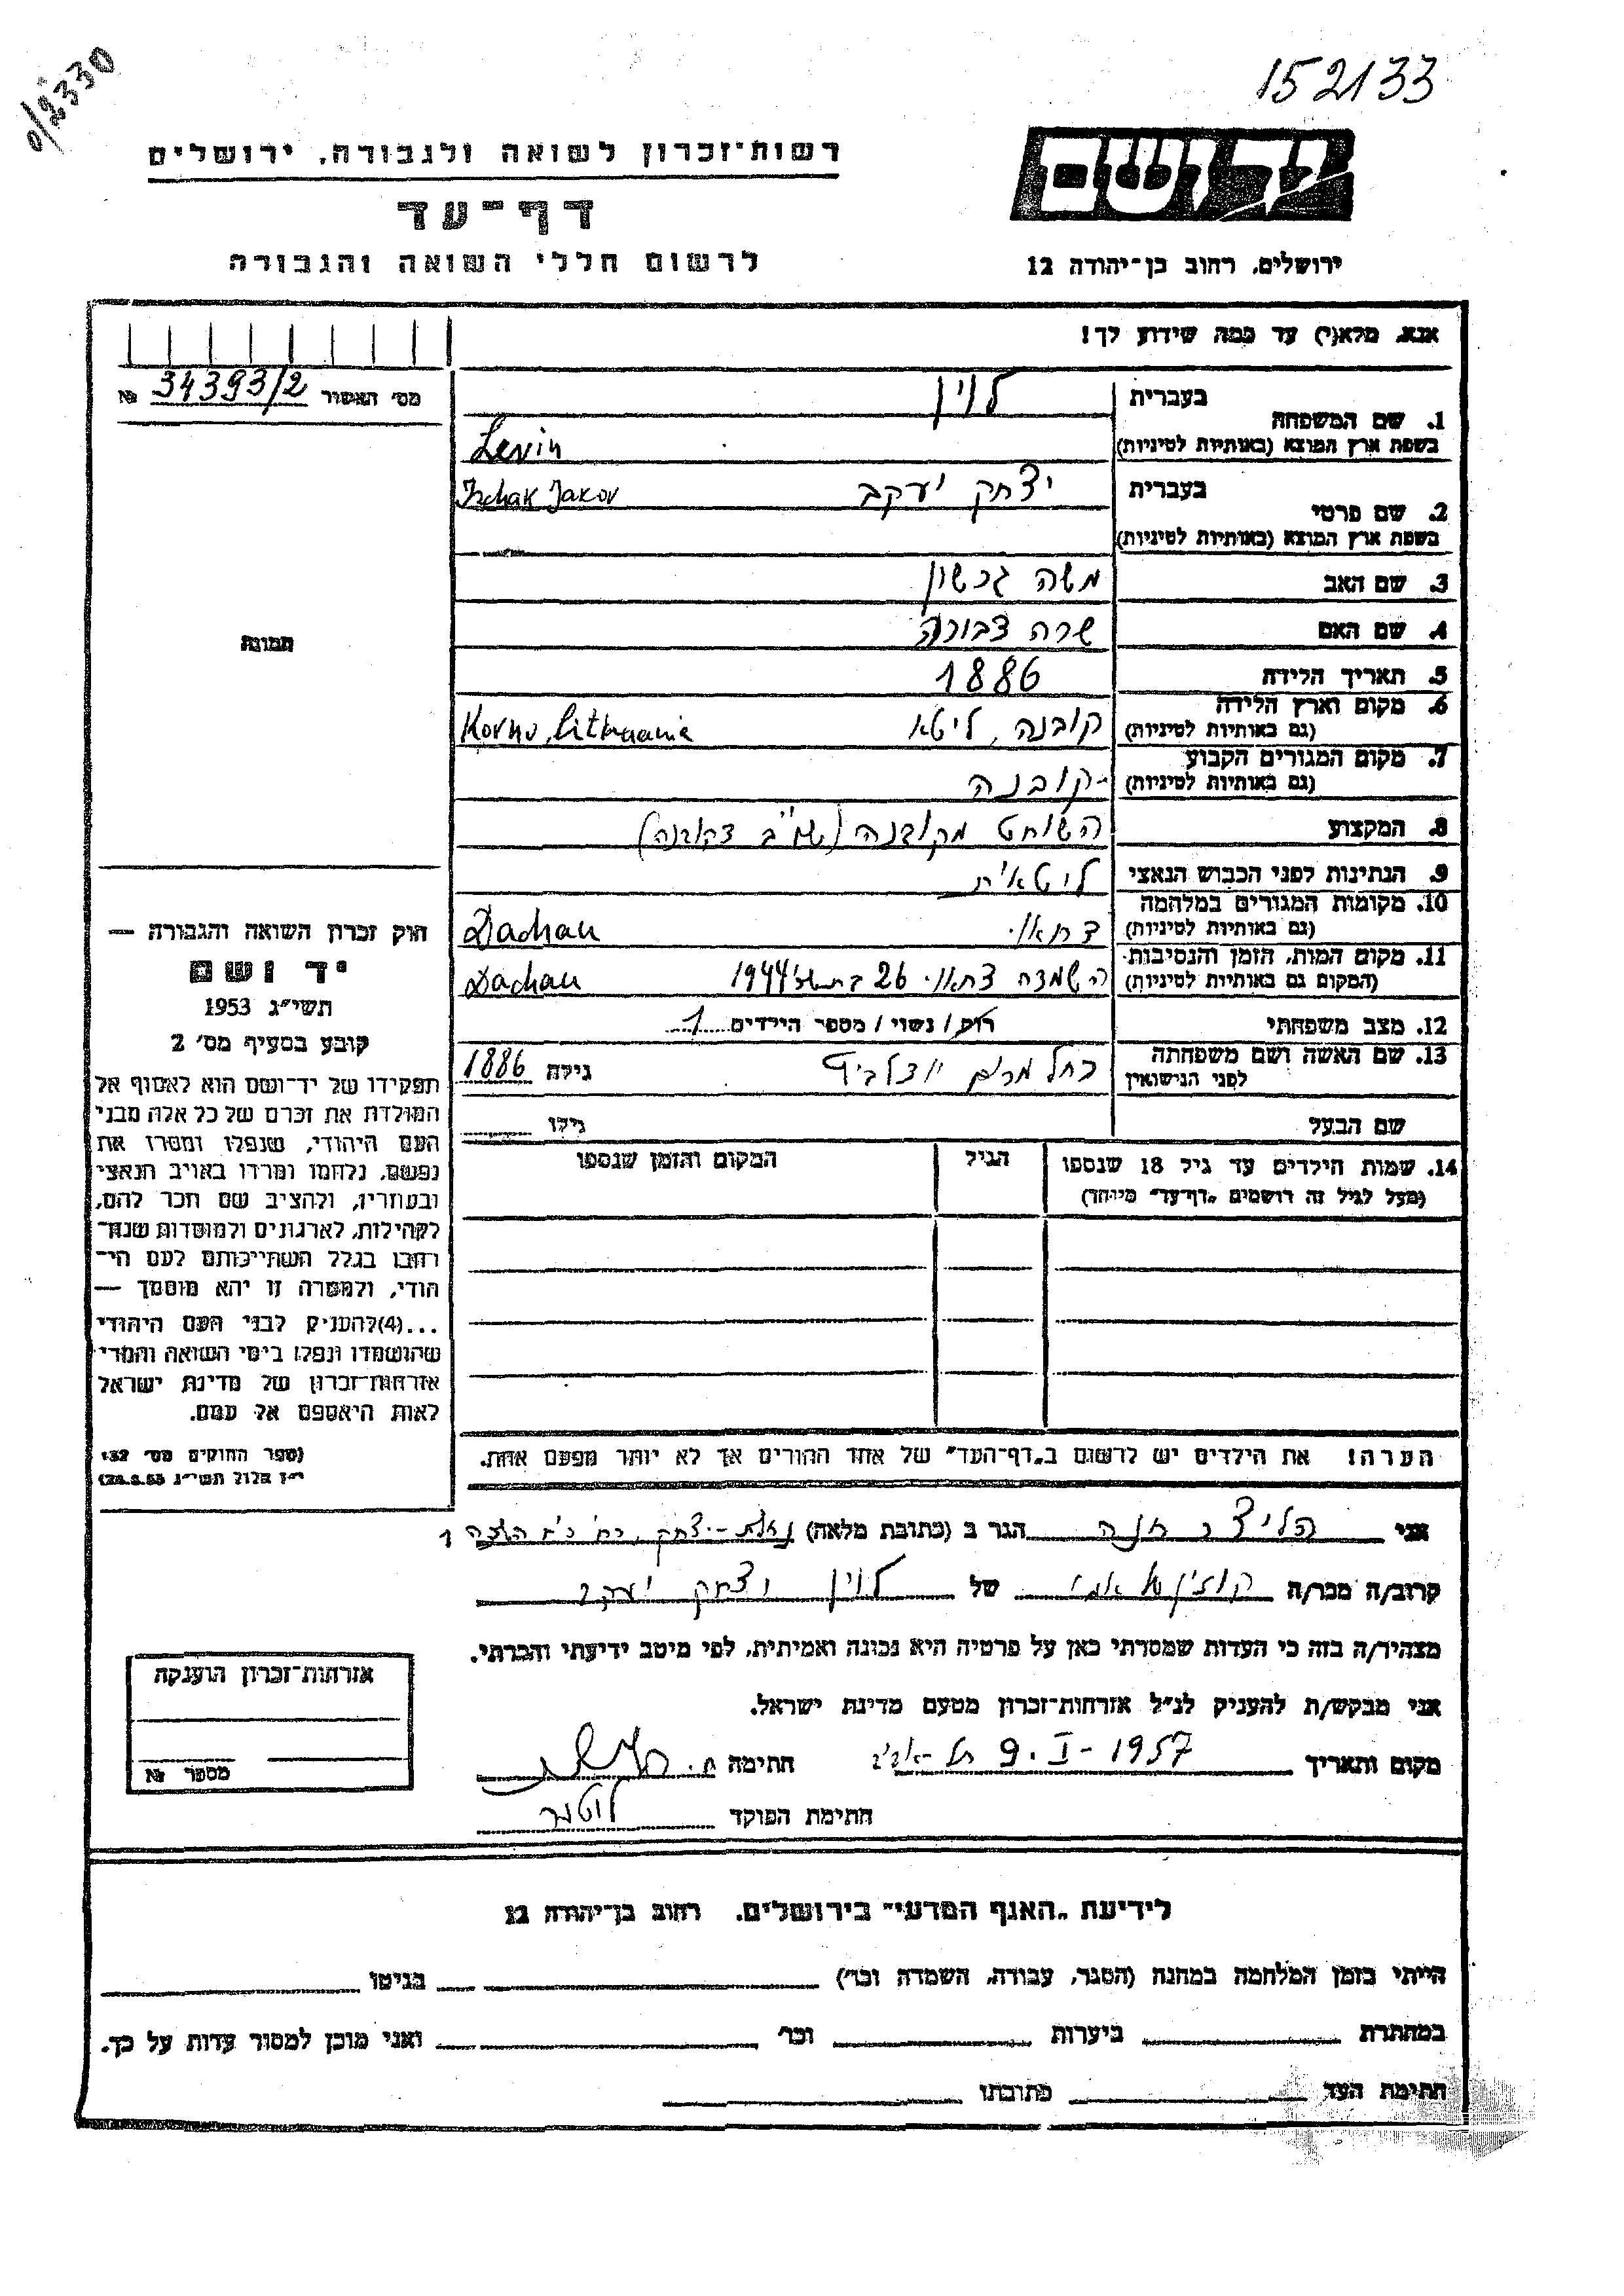 0/2330
152133
רשות־זכרון לשואה ולגבורה, ירושלים
יד ושם
דף־עד
לרשום חללי השואה והגבורה
ירושלים, רחוב בן־יהודה 12
אנא, מלא(י) עד כמה שידוע לך!
מס׳ האשור 34393/2 №
1. שם המשפחה בעברית לוין
בשפת ארץ המוצא (באותיות לטיניות) Levin
2. שם פרטי בעברית יצחק יעקב Izchak Jakov
בשפת ארץ המוצא (באותיות לטיניות)
3. שם האב משה גרשון
4. שם האם שרה דבורה
5. תאריך הלידה 1886
6. מקום וארץ הלידה (גם באותיות לטיניות) קובנה, ליטא Kovno, Lithuania
7. מקום המגורים הקבוע (גם באותיות לטיניות) קובנה
8. המקצוע השוחט מקובנה (שו"ב דקובנה)
9. הנתינות לפני הכבוש הנאצי ליטאית
10. מקומות המגורים במלחמה (גם באותיות לטיניות) דחאו. Dachau
11. מקום המות, הזמן והנסיבות (המקום גם באותיות לטיניות) דחאו. 26 1944 Dachau
12. מצב משפחתי רוק / נשוי / מספר הילדים 1
13. שם האשה ושם משפחתה לפני הנישואין רחל מרים גילה 1886
שם הבעל גילו
14. שמות הילדים עד גיל 18 שנספו (מעל לגיל זה רושמים „דף־עד״ מיוחד) הגיל המקום והזמן שנספו
הערה! את הילדים יש לרשום ב„דף־העד״ של אחד ההורים אך לא יותר מפעם אחת.
תמונה
חוק זכרון השואה והגבורה —
יד ושם
תשי״ג 1953
קובע בסעיף מס׳ 2
תפקידו של יד־ושם הוא לאסוף אל
המולדת את זכרם של כל אלה מבני
העם היהודי, שנפלו ומסרו את
נפשם, נלחמו ומרדו באויב הנאצי
ובעוזריו, ולהציב שם וזכר להם,
לקהילות, לארגונים ולמוסדות שנח־
רבו בגלל השתייכותם לעם הי־
הודי, ולמטרה זו יהא מוסמך —
...(4) להעניק לבני העם היהודי
שהושמדו ונפלו בימי השואה והמרי
אזרחות־זכרון של מדינת ישראל
לאות היאספם אל עמם.
(ספר החוקים מס׳ 132,
י״ז אלול תשי״ג 28.8.53)
אני חנה הגר ב (כתובת מלאה) נחלת־יצחק, 1
קרוב/ה מכר/ה של לוין יצחק יעקב
מצהיר/ה בזה כי העדות שמסרתי כאן על פרטיה היא נכונה ואמיתית, לפי מיטב ידיעתי והכרתי.
אני מבקש/ת להעניק לנ״ל אזרחות־זכרון מטעם מדינת ישראל.
מקום ותאריך 9.I-1957 תל-אביב חתימה
חתימת הפוקד
אזרחות־זכרון הוענקה
מספר №
לידיעת „האגף המדעי״ בירושלים, רחוב בן־יהודה 12
הייתי בזמן המלחמה במחנה (הסגר, עבודה, השמדה וכו׳) בגיטו
במחתרת ביערות וכו׳ ואני מוכן למסור עדות על כך.
חתימת העד כתובתו